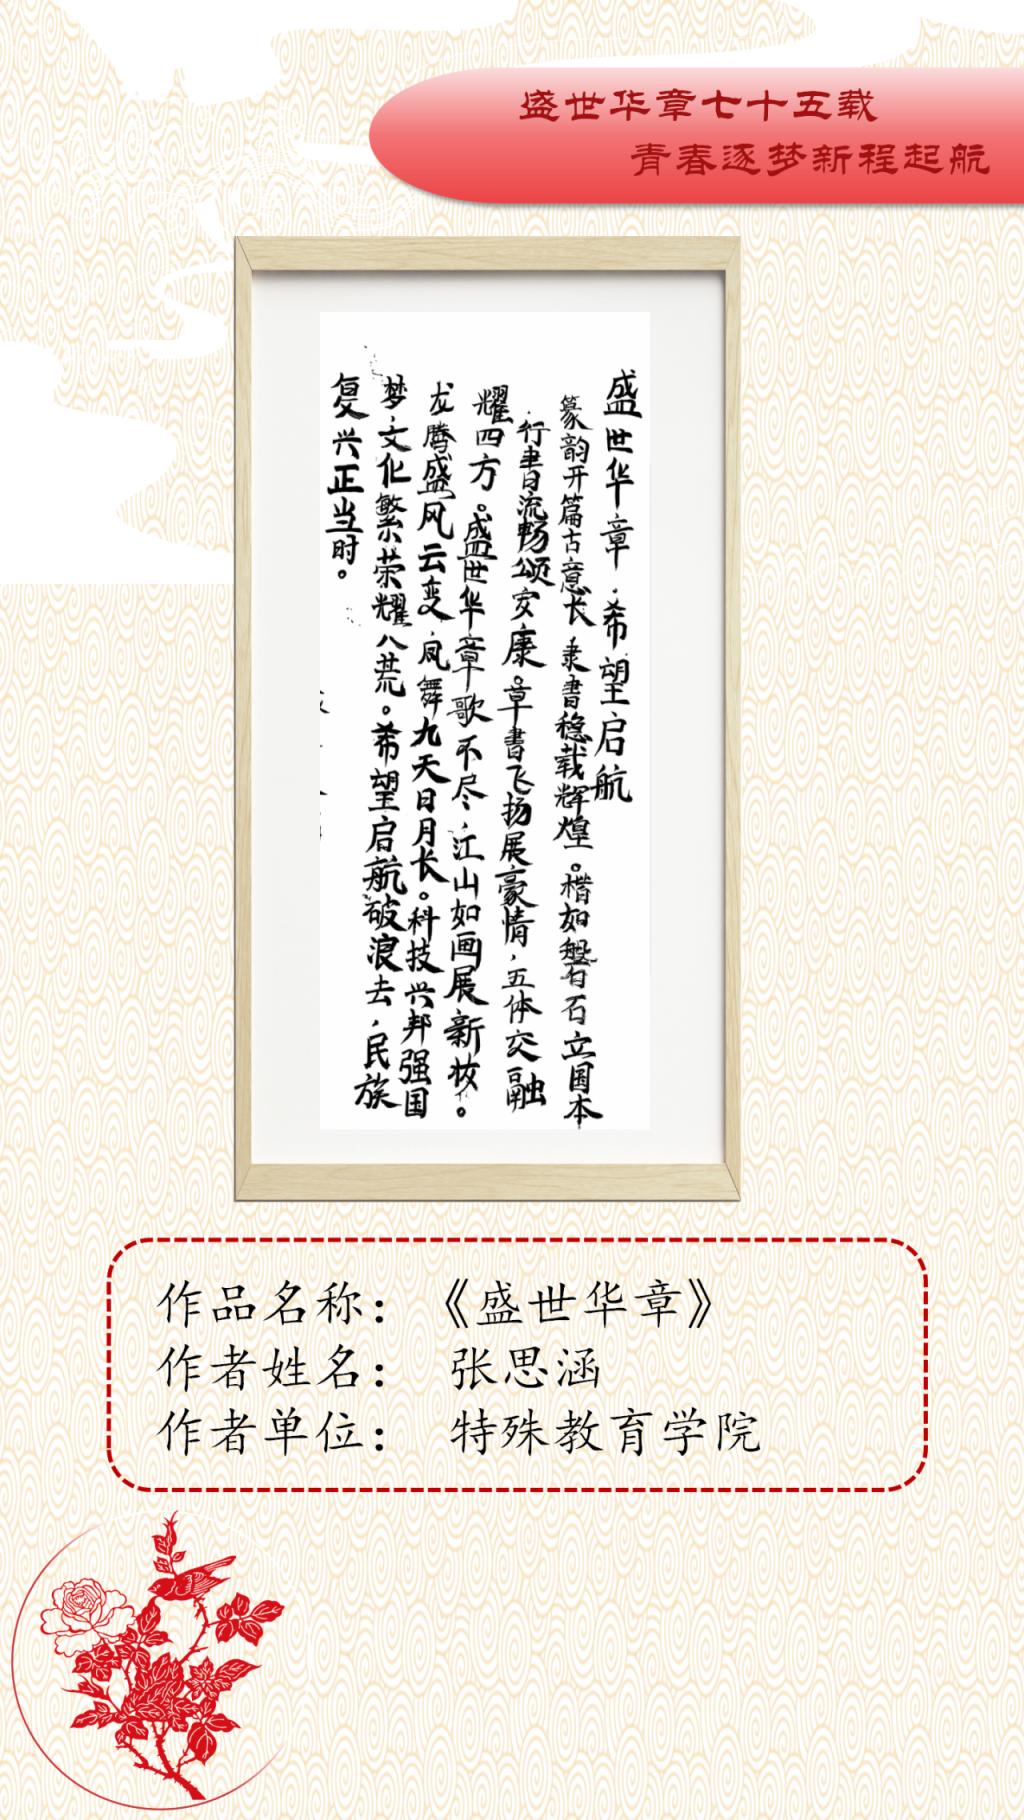 盛世华章七十五载
青春逐梦新程起航
盛世华章，希望启航
篆韵开篇古意长，隶书稳载辉煌。楷如磐石立国本
，行书流畅颂安康。草书飞扬展豪情，五体交融
耀四方。盛世华章歌不尽，江山如画展新妆。
龙腾盛风云变，凤舞九天日月长。科技兴邦强国
梦，文化繁荣耀八荒。希望启航破浪去，民族
复兴正当时。
作品名称：《盛世华章》
作者姓名： 张思涵
作者单位： 特殊教育学院